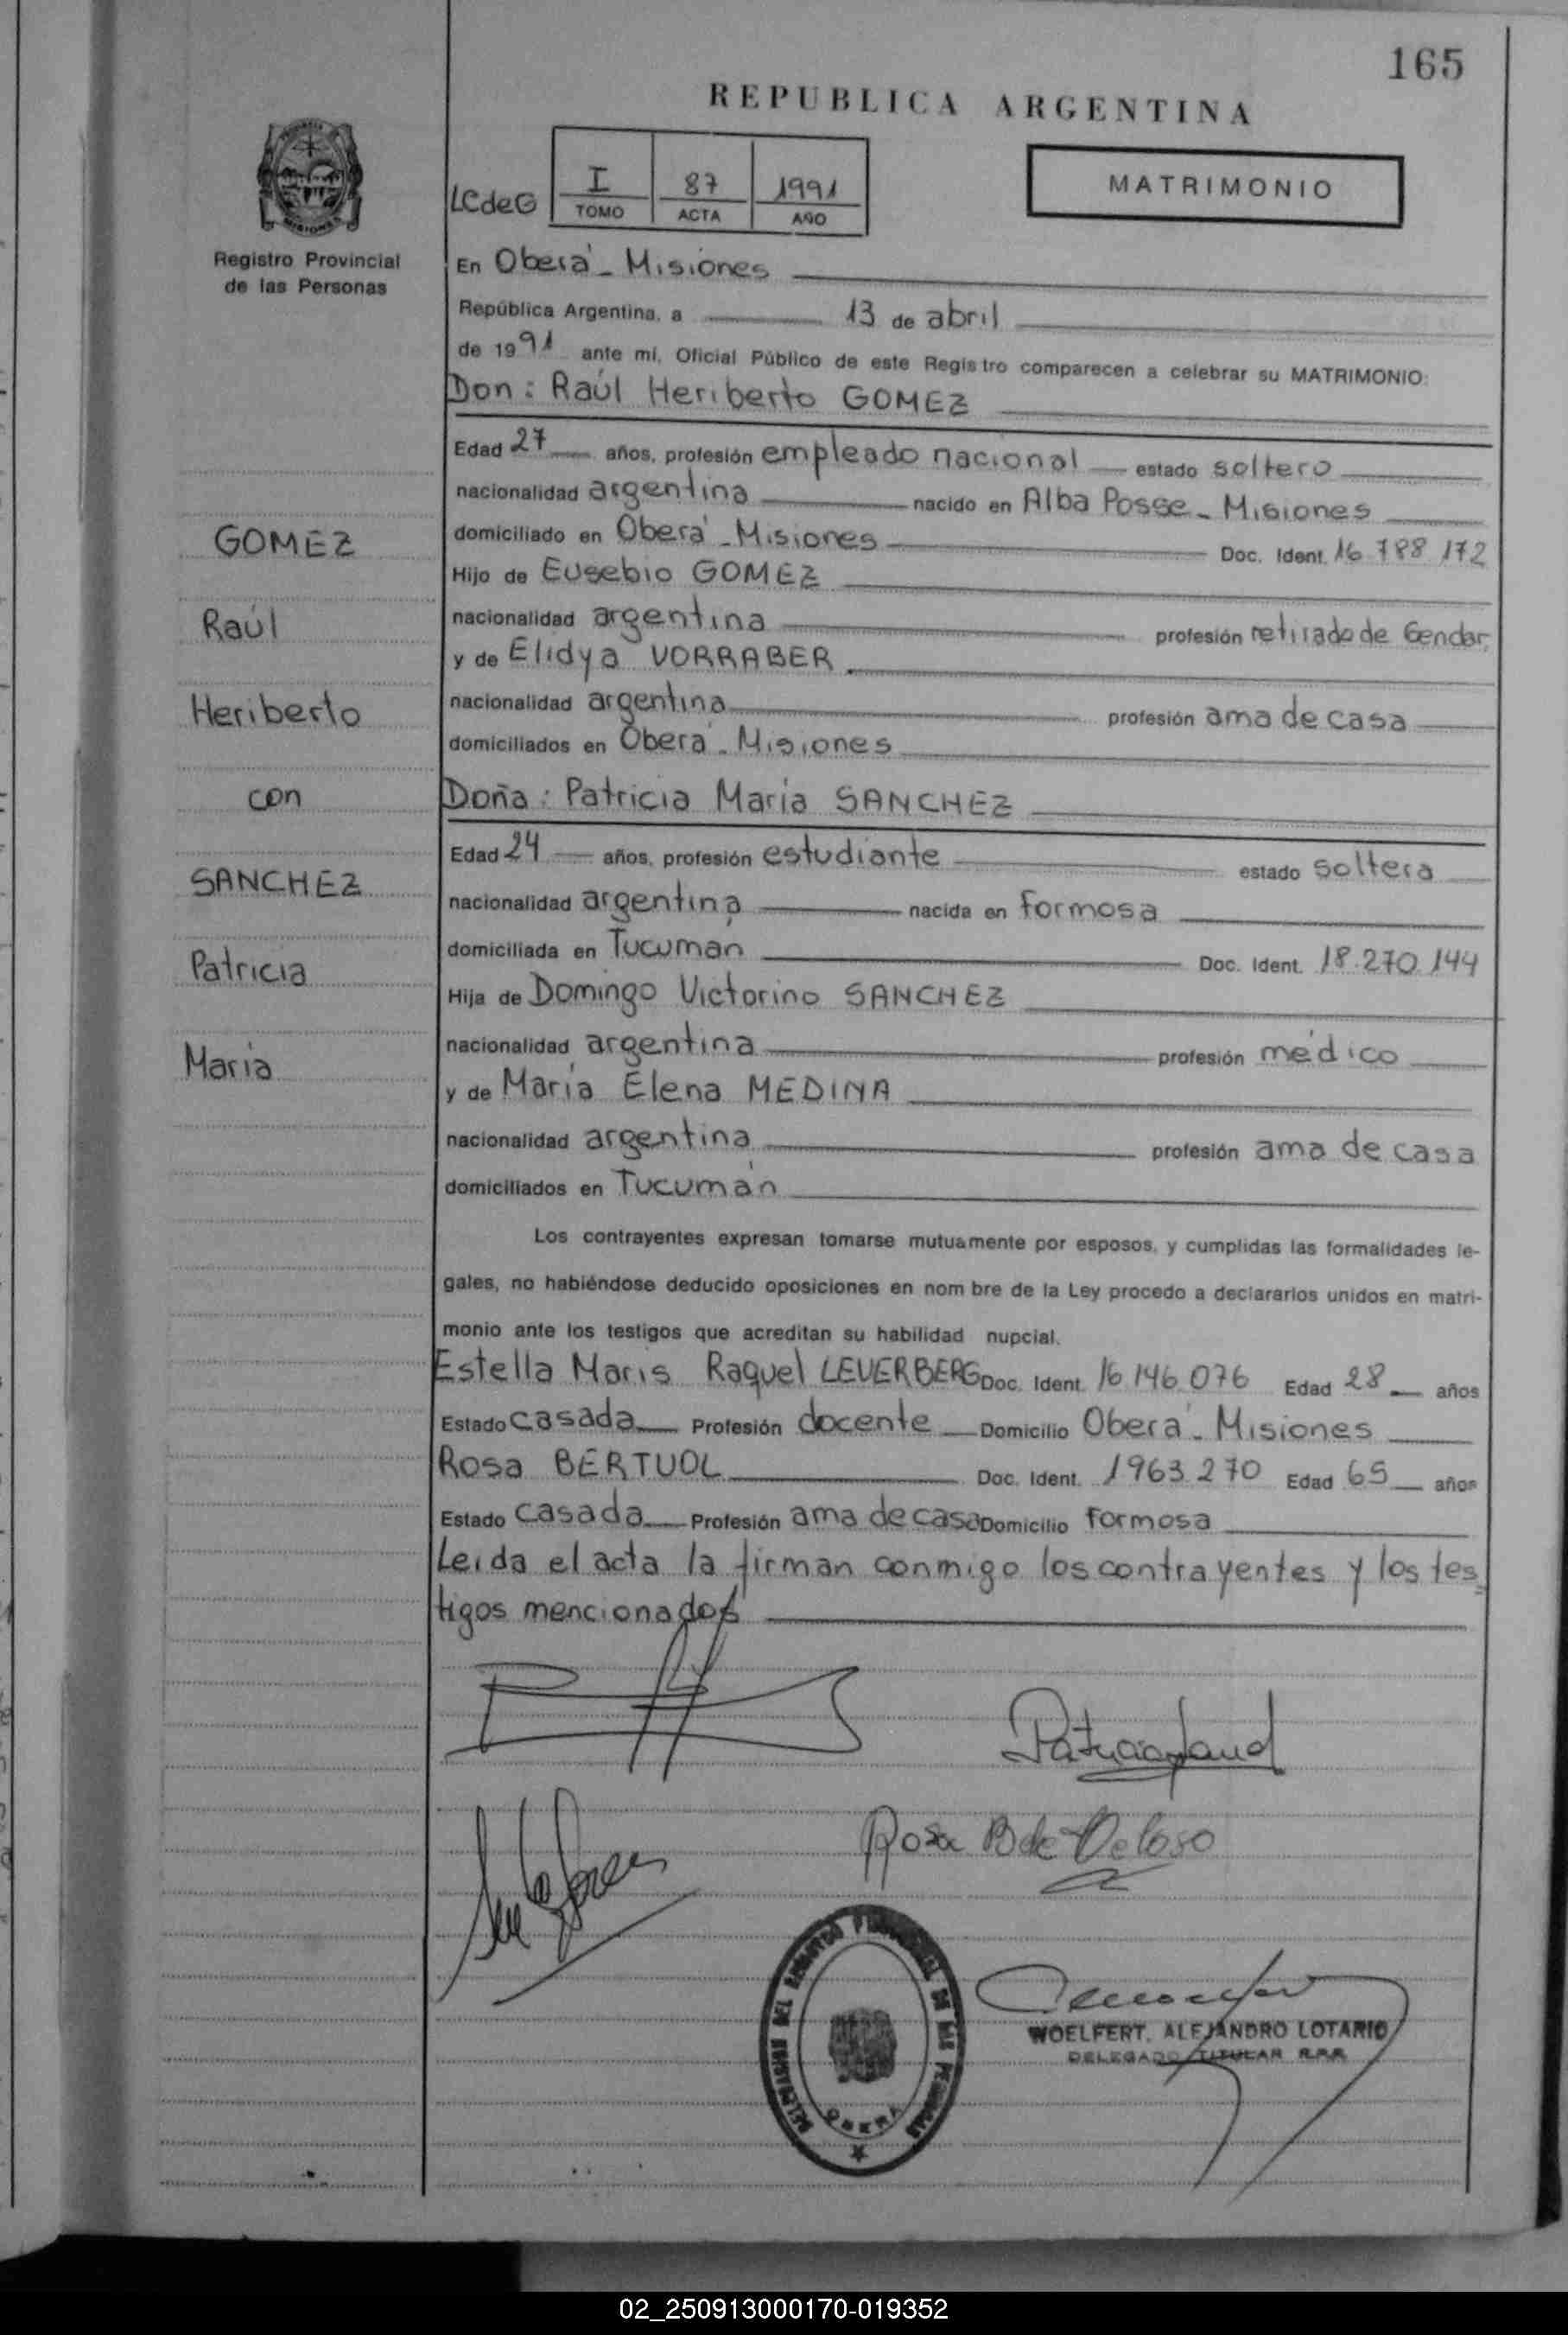 165
REPUBLICA ARGENTINA
MATRIMONIO
LCdeG
I 87 1991
TOMO ACTA AÑO
Registro Provincial
de las Personas
En Oberá - Misiones
República Argentina, a 13 de abril
de 1991 ante mí, Oficial Público de este Registro comparecen a celebrar su MATRIMONIO:
Don: Raúl Heriberto GOMEZ
Edad 27 años, profesión empleado nacional estado soltero
nacionalidad argentina nacido en Alba Posse - Misiones
domiciliado en Oberá - Misiones Doc. Ident. 16.788.172
Hijo de Eusebio GOMEZ
nacionalidad argentina profesión retirado de Gendar.
y de Elidya VORRABER
nacionalidad argentina profesión ama de casa
domiciliados en Oberá - Misiones
Doña: Patricia María SANCHEZ
Edad 24 años, profesión estudiante estado soltera
nacionalidad argentina nacida en Formosa
domiciliada en Tucuman Doc. Ident. 18.270.144
Hija de Domingo Victorino SANCHEZ
nacionalidad argentina profesión médico
y de María Elena MEDINA
nacionalidad argentina profesión ama de casa
domiciliados en Tucumán
GOMEZ
Raúl
Heriberto
con
SANCHEZ
Patricia
María
Los contrayentes expresan tomarse mutuamente por esposos, y cumplidas las formalidades le-
gales, no habiéndose deducido oposiciones en nombre de la Ley procedo a declararlos unidos en matri-
monio ante los testigos que acreditan su habilidad nupcial.
Estella Maris Raquel LEVERBERG Doc. Ident. 16.146.076 Edad 28 años
Estado casada Profesión docente Domicilio Oberá - Misiones
Rosa BERTUOL Doc. Ident. 1963.270 Edad 65 años
Estado casada Profesión ama de casa Domicilio Formosa
Leída el acta la firman conmigo los contrayentes y los tes=
tigos mencionados
Rosa B de Veloso
DEL REGISTRO PROVINCIAL DE LAS PERSONAS
OBERA
WOELFERT, ALEJANDRO LOTARIO
DELEGADO TITULAR R.P.P.
02_250913000170-019352